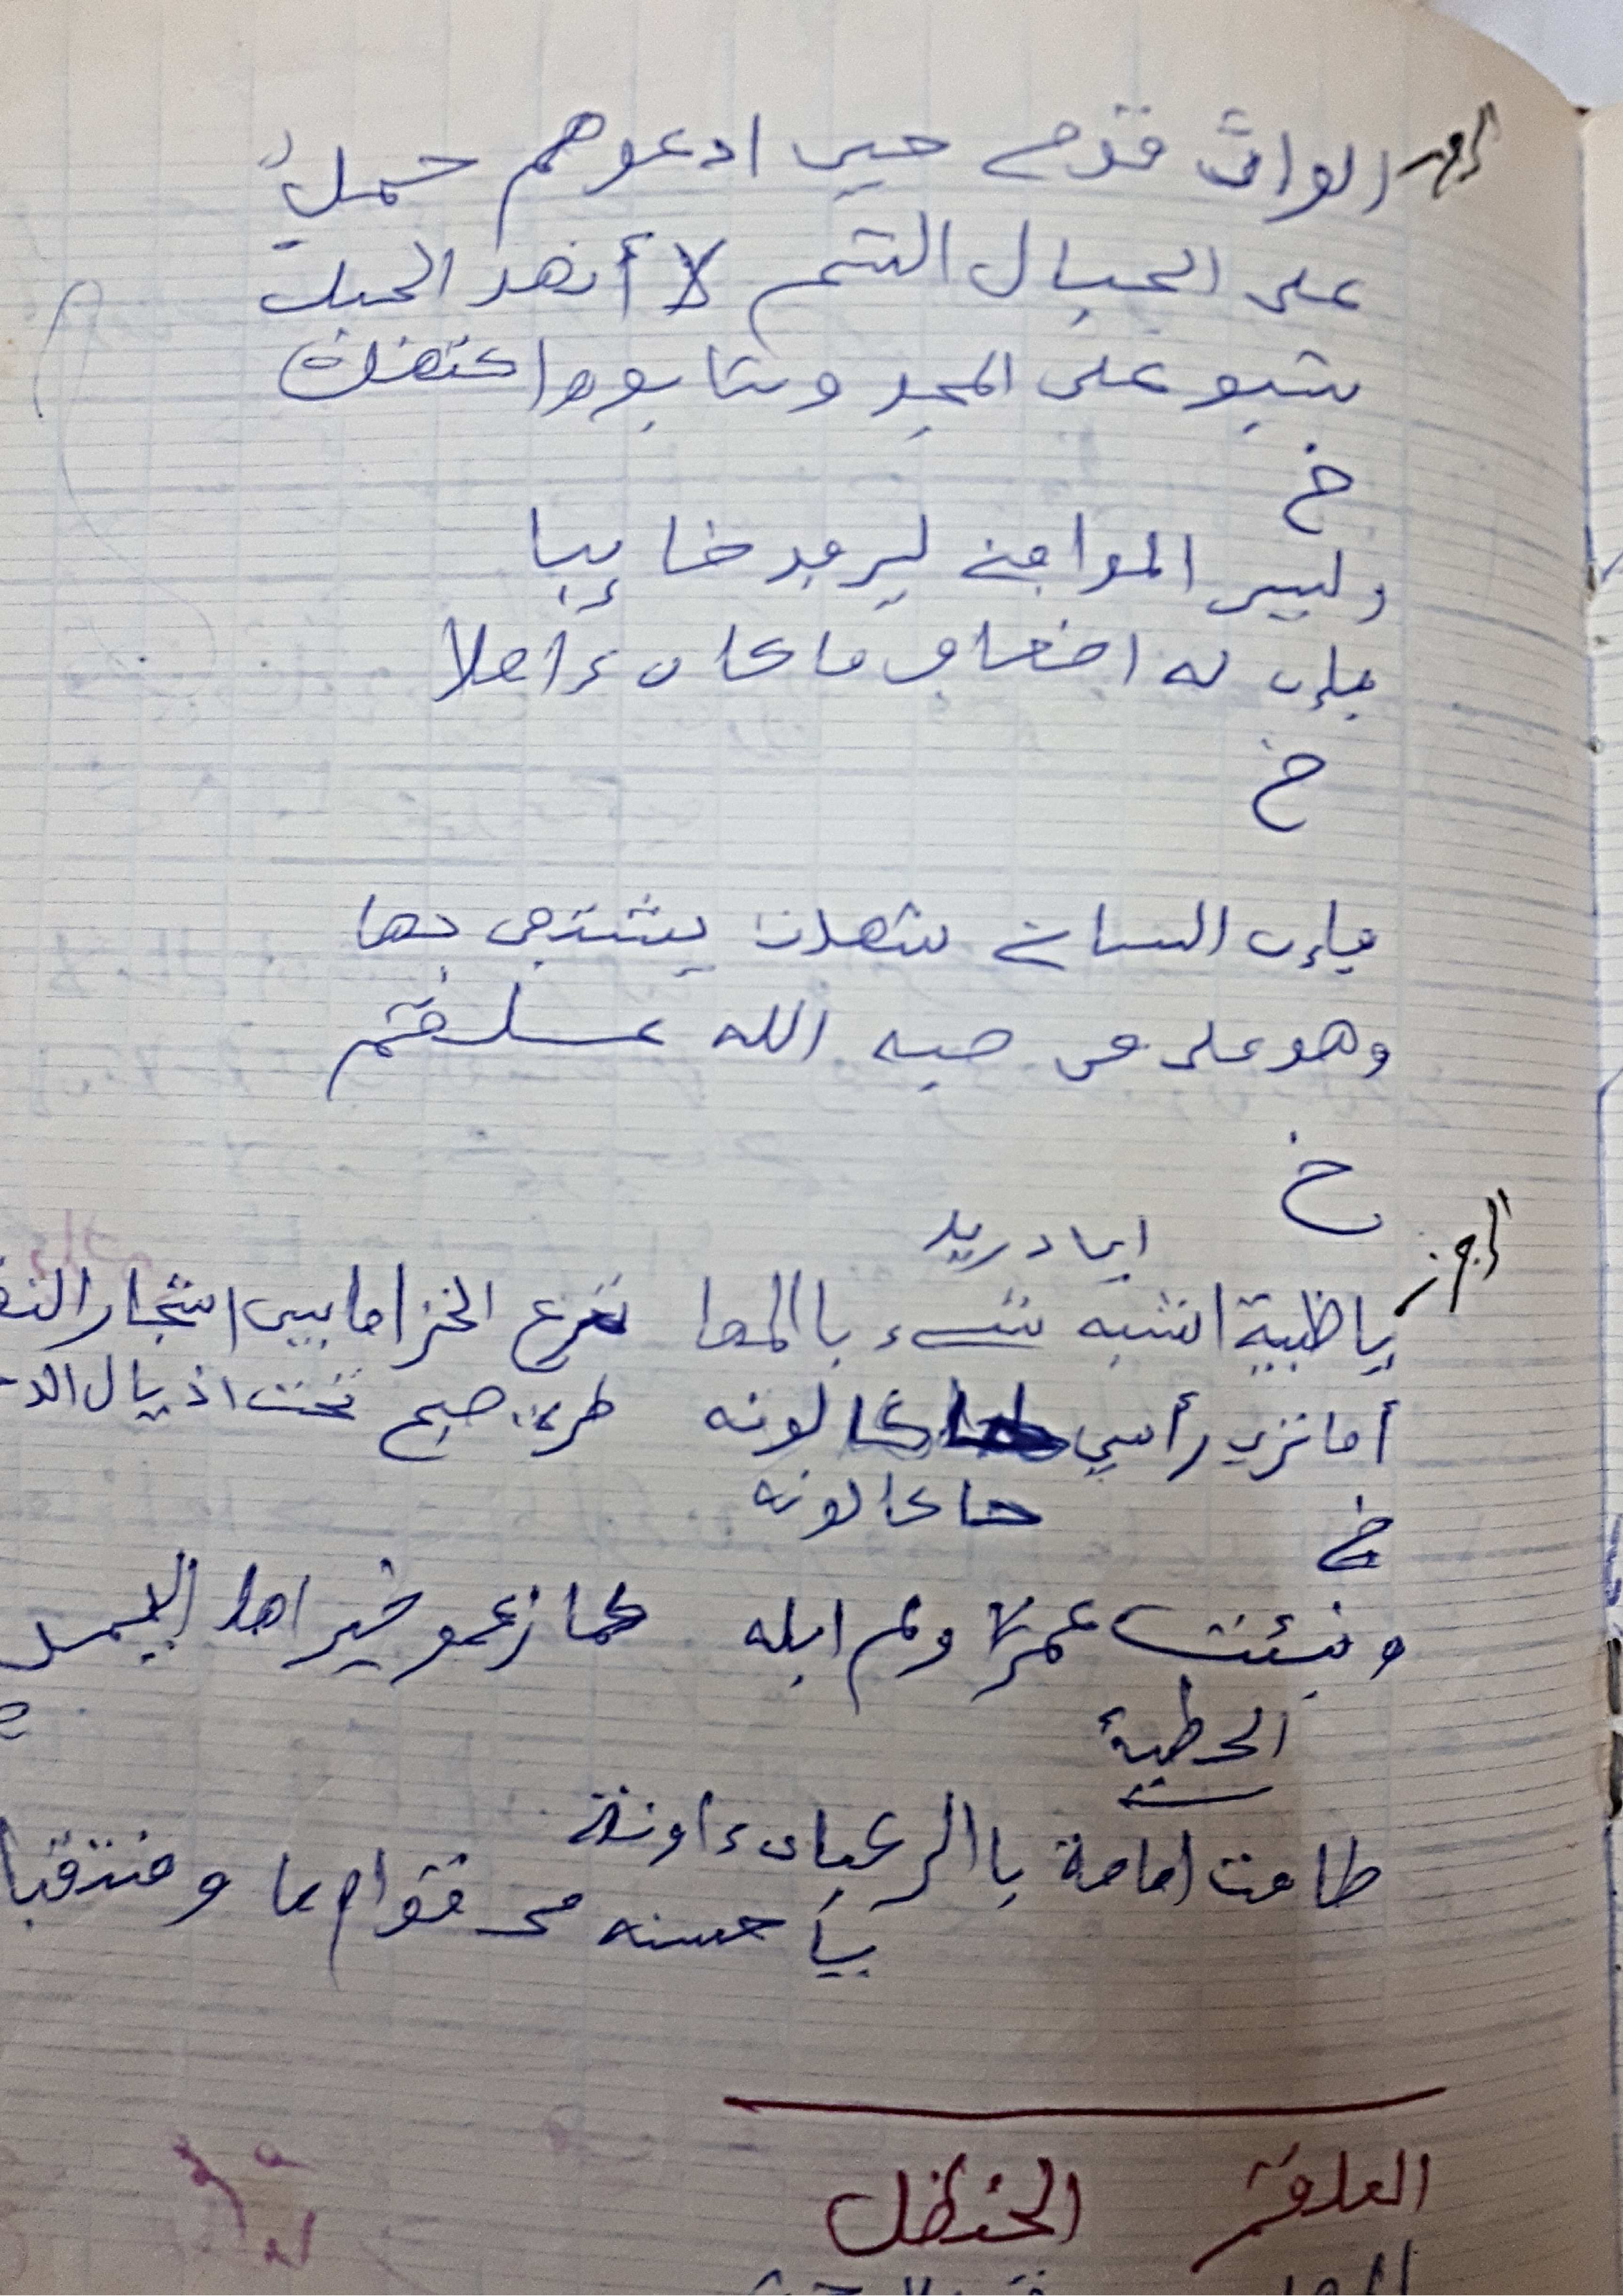 الوات قومي حين ادعوهم حمل
على الجبال الشم لا أنهد الجبل
شبو على المجد وشابوا واكتهل
خ
وليس الموافيني ليرفد خايبا
فإن له اضعاف ما كان ءاملا
خ
فإن لساني شهدة يشتفى بها
وهو على من صبه الله علقم
خ
أرجز
ابن دريد
يا ظبية اشبه شيء باالمها ترعى الخزاما بين اشجار النقا
أما تري رأسي حاكا لونه طرة صبح تحت اذيال الد
حاكا لونه
خ
ونبئت عمرا ولم ابله كما زعمو خير اهل اليمن
الحطيئة
طافت امامة باالركبان ءاونة
يا حسنه من قوام ما ومنتقبا
العلقم الحنظل